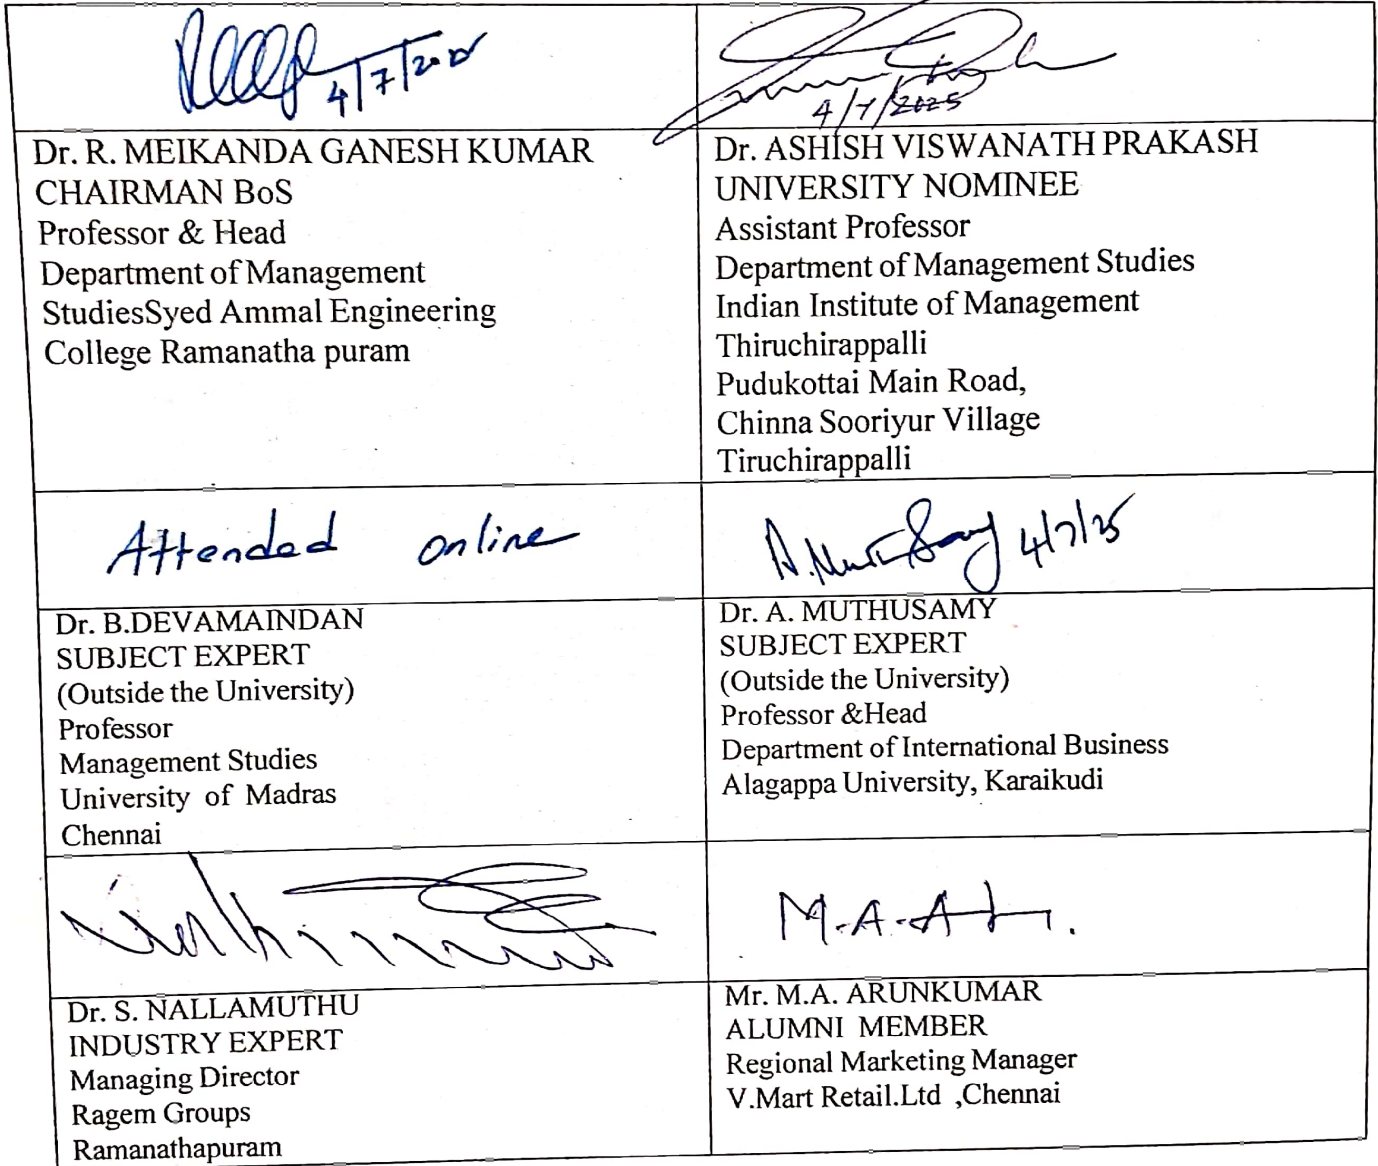 4/7/2025
4/7/2025
Dr. R. MEIKANDA GANESH KUMAR
CHAIRMAN BoS
Professor & Head
Department of Management
StudiesSyed Ammal Engineering
College Ramanatha puram
Dr. ASHISH VISWANATH PRAKASH
UNIVERSITY NOMINEE
Assistant Professor
Department of Management Studies
Indian Institute of Management
Thiruchirappalli
Pudukottai Main Road,
Chinna Sooriyur Village
Tiruchirappalli
Attended online
4/7/25
Dr. B.DEVAMAINDAN
SUBJECT EXPERT
(Outside the University)
Professor
Management Studies
University of Madras
Chennai
Dr. A. MUTHUSAMY
SUBJECT EXPERT
(Outside the University)
Professor &Head
Department of International Business
Alagappa University, Karaikudi
M.A.A
Dr. S. NALLAMUTHU
INDUSTRY EXPERT
Managing Director
Ragem Groups
Ramanathapuram
Mr. M.A. ARUNKUMAR
ALUMNI MEMBER
Regional Marketing Manager
V.Mart Retail.Ltd ,Chennai